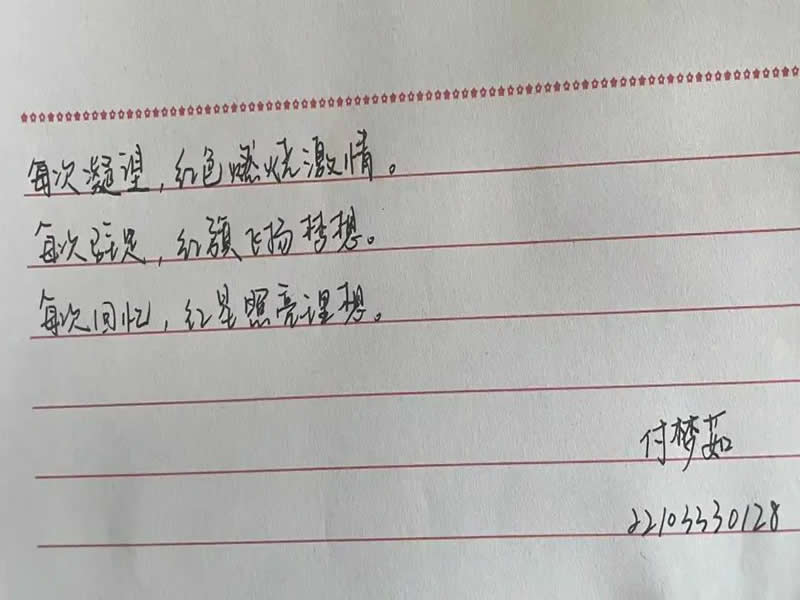 每次凝望，红色燃烧激情。
每次驻足，红旗飞扬梦想。
每次回忆，红星照亮理想。
付梦茹
22103330128